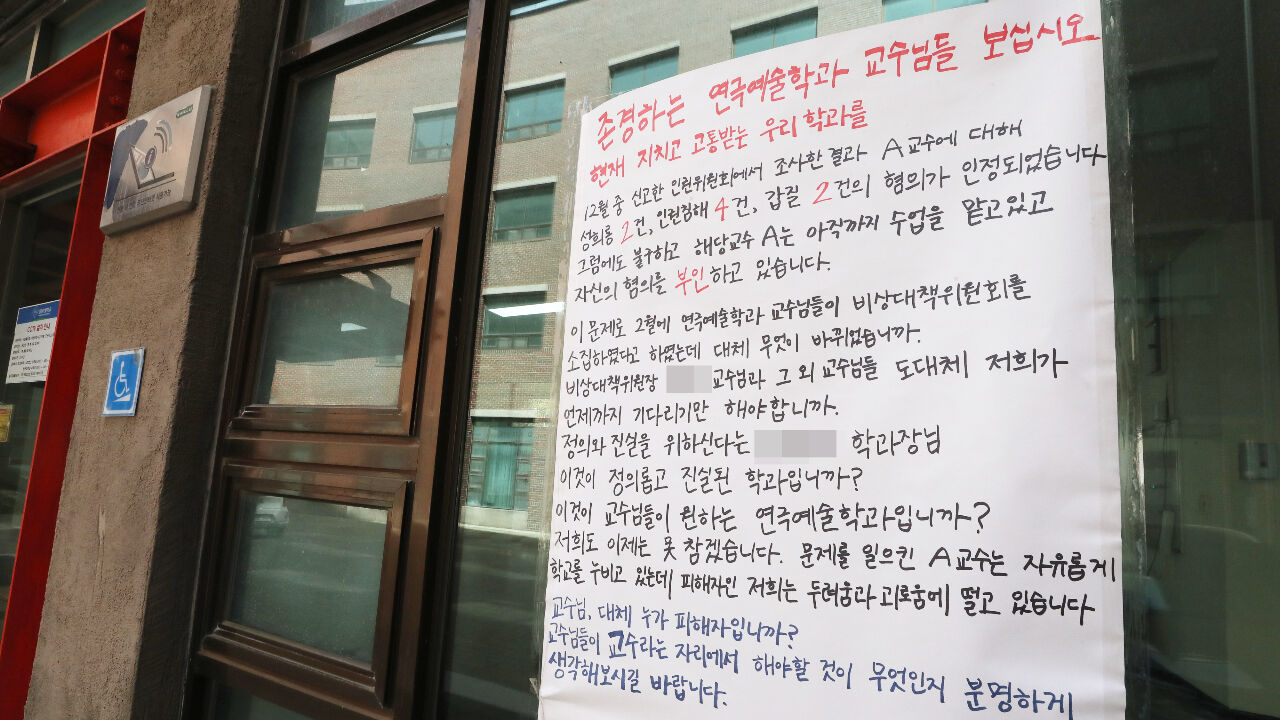 존경하는 연극예술학과 교수님들 보십시오
현재 지치고 고통받는 우리 학과를
12월 중 신고한 인권위원회에서 조사한 결과 A교수에 대해
성희롱 2건, 인권침해 4건, 갑질 2건의 혐의가 인정되었습니다
그럼에도 불구하고 해당교수 A는 아직까지 수업을 맡고있고
자신의 혐의를 부인하고 있습니다.
이 문제로 2월에 연극예술학과 교수님들이 비상대책위원회를
소집하였다고 하였는데 대체 무엇이 바뀌었습니까.
비상대책위원장 교수님과 그 외 교수님들 도대체 저희가
언제까지 기다리기만 해야합니까.
정의와 진실을 위하신다는 학과장님
이것이 정의롭고 진실된 학과입니까?
이것이 교수님들이 원하는 연극예술학과입니까?
저희도 이제는 못 참겠습니다. 문제를 일으킨 A교수는 자유롭게
학교를 누비고 있는데 피해자인 저희는 두려움과 괴로움에 떨고 있습니다
교수님, 대체 누가 피해자입니까?
교수님들이 교수라는 자리에서 해야할 것이 무엇인지 분명하게
생각해보시길 바랍니다.